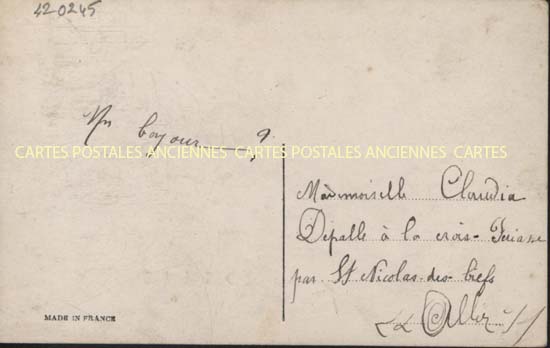 420245
Un bojour
CARTES POSTALES ANCIENNES CARTES POSTALES ANCIENNES CARTES
Mademoiselle Claudia
Dépalle à la croix-
par St Nicolas-des-biefs
Allier
MADE IN FRANCE